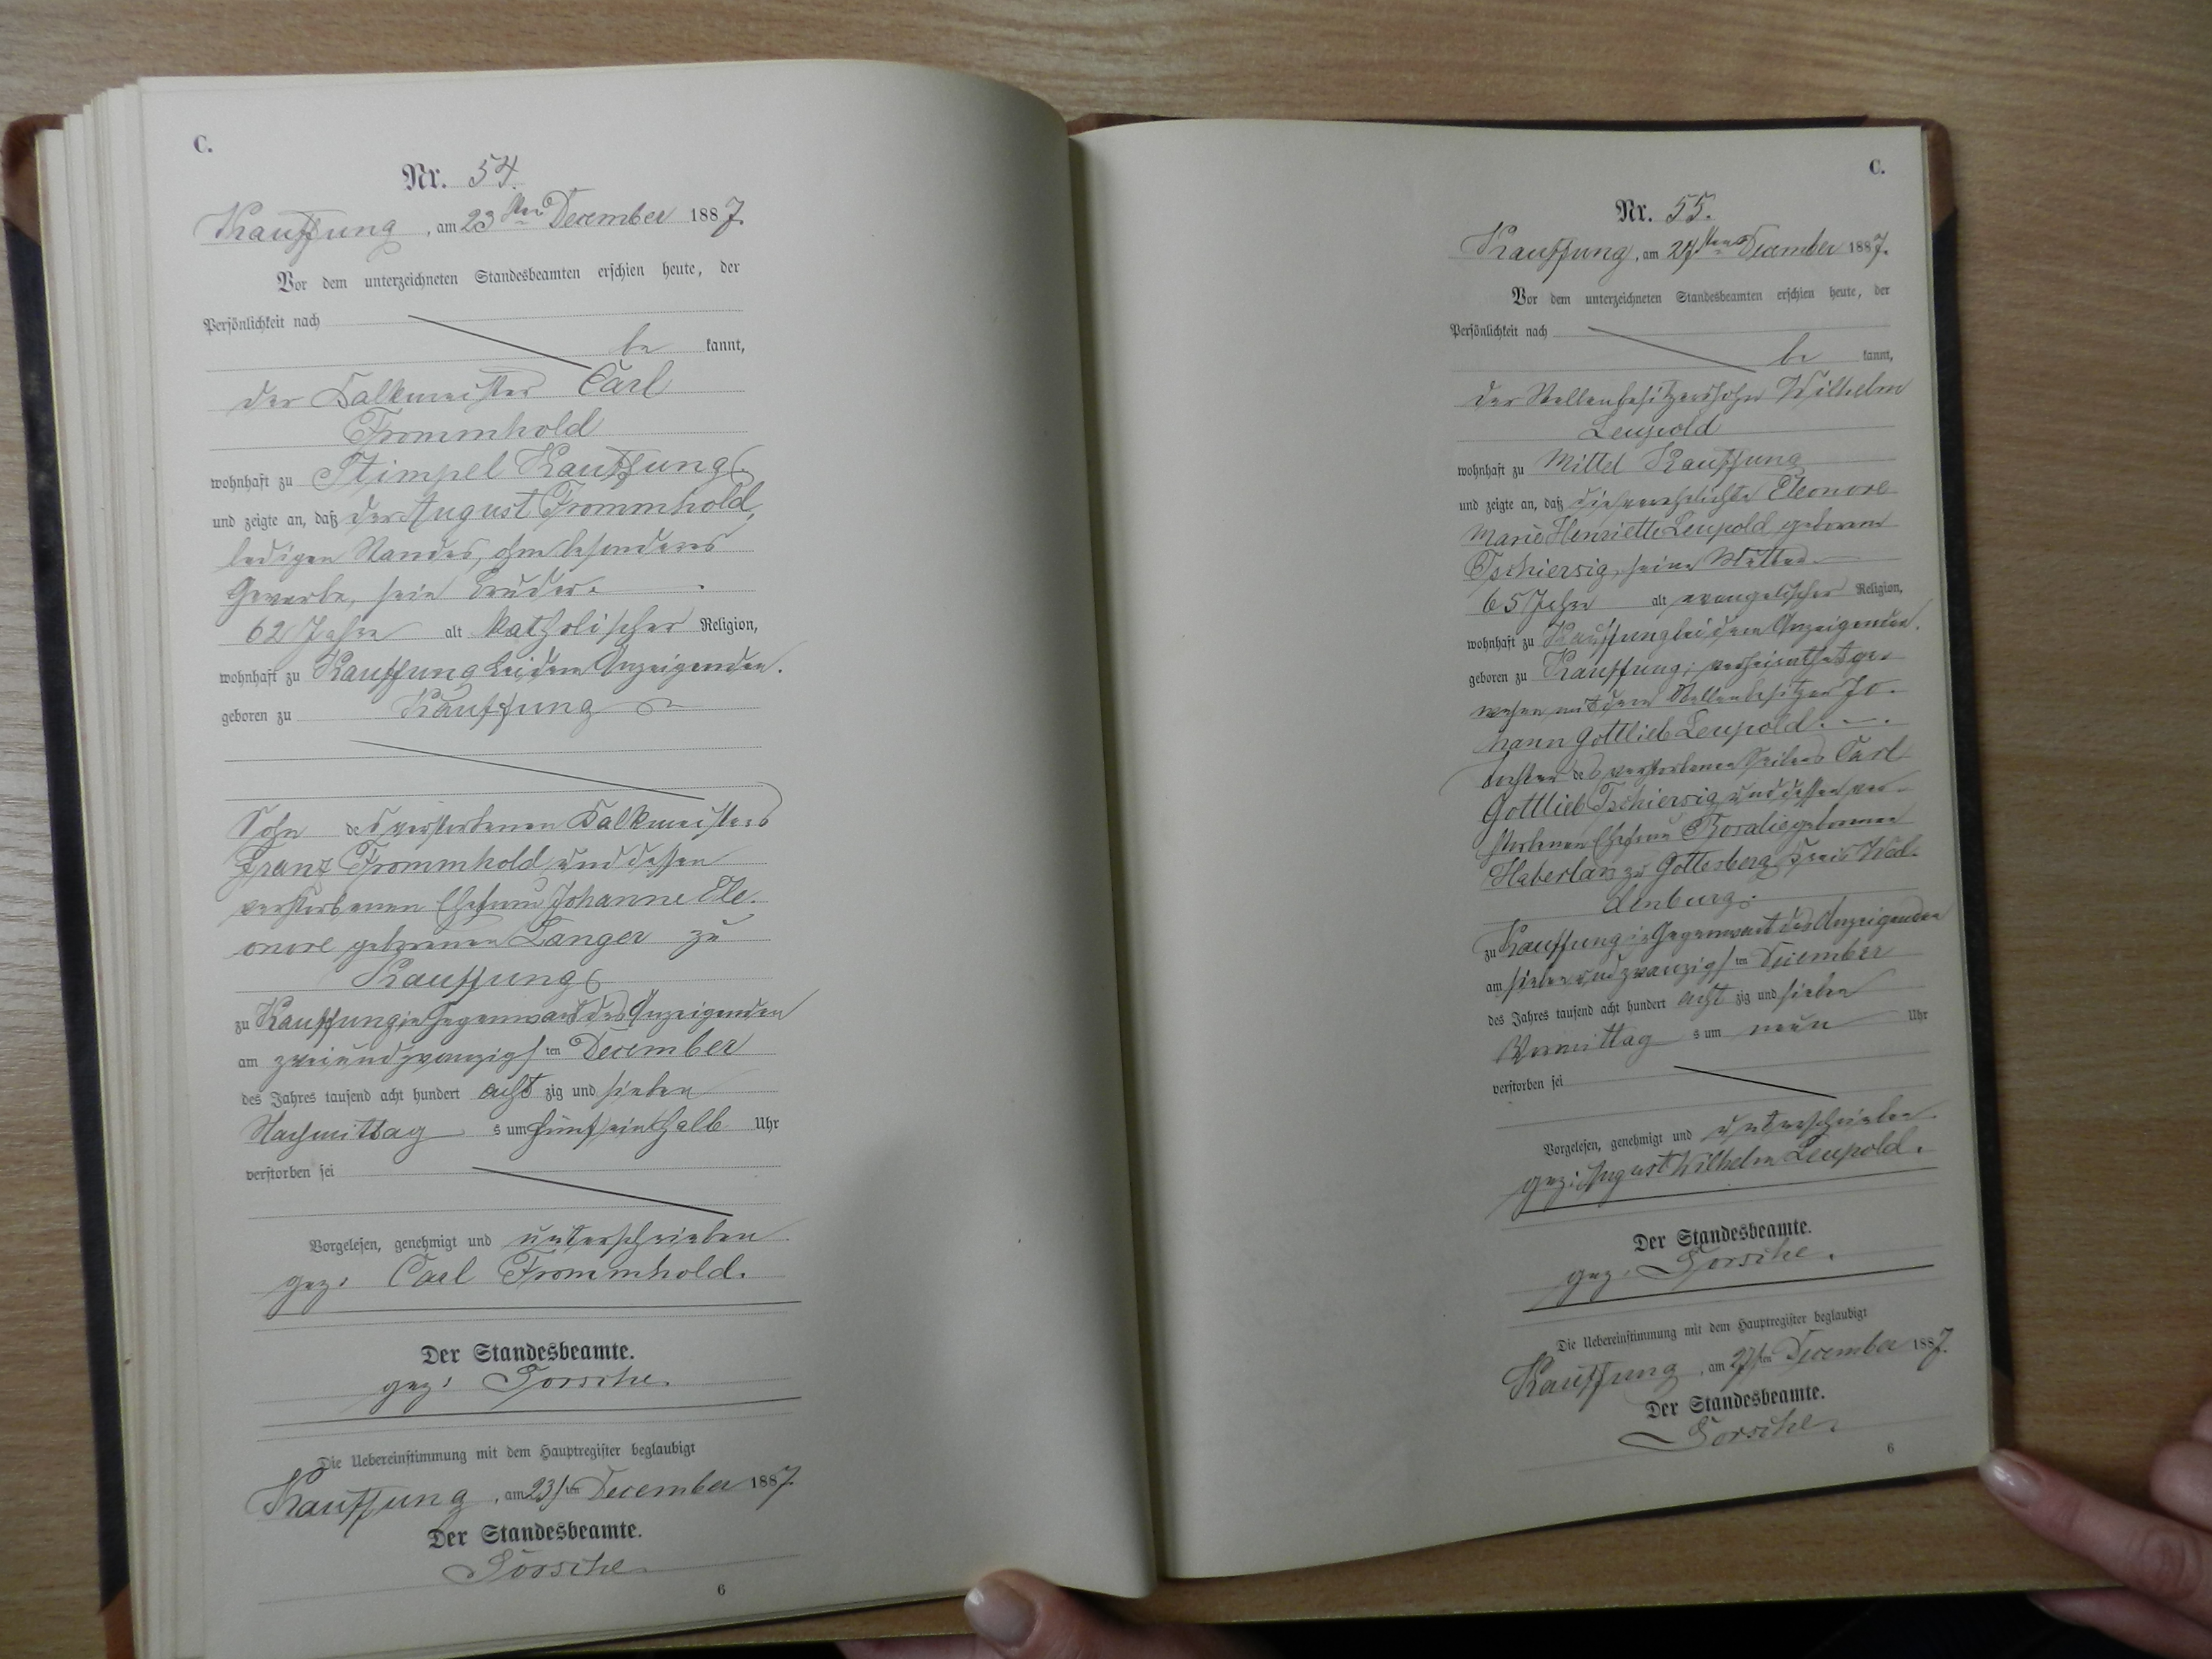 C.
Nr. 54.
Kauffung, am 23ten December 1887.
Vor dem unterzeichneten Standesbeamten erschien heute, der
Persönlichkeit nach
be kannt,
der Kalkmeister Carl
Frommhold
wohnhaft zu Stimpel Kauffung
und zeigte an, daß der August Frommhold,
ledigen Standes, ohne besonderes
Gewerbe, sein Bruder.
62 Jahre alt katholischer Religion,
wohnhaft zu Kauffung bei dem Anzeigenden.
geboren zu Kauffung
Sohn des verstorbenen Kalkmeisters
Franz Frommhold und dessen
verstorbenen Ehefrau Johanne Ele-
onore geborenen Langer zu
Kauffung
zu Kauffung in Gegenwart des Anzeigenden
am zweiundzwanzigsten December
des Jahres tausend acht hundert acht zig und sieben
Nachmittag s um fünf einhalb Uhr
verstorben sei
Vorgelesen, genehmigt und unterschrieben
gez: Carl Frommhold.
Der Standesbeamte.
gez:
Die Uebereinstimmung mit dem Hauptregister beglaubigt
Kauffung, am 23ten December 1887.
Der Standesbeamte.
6
C.
Nr. 55.
Kauffung, am 27ten December 1887.
Vor dem unterzeichneten Standesbeamten erschien heute, der
Persönlichkeit nach
be kannt,
der Stellenbesitzerssohn Wilhelm
Leupold
wohnhaft zu Mittel Kauffung
und zeigte an, daß die verehelichte Eleonore
Marie Henriette Leupold geborene
Tschiersig, seine Mutter
65 Jahre alt evangelischer Religion,
wohnhaft zu Kauffung bei dem Anzeigenden.
geboren zu Kauffung; verheirathet ge-
wesen mit dem Stellenbesitzer Jo-
hann Gottlieb Leupold.
Tochter des verstorbenen Carl
Gottlieb Tschiersig und dessen ver-
storbenen Ehefrau Rosalie geborenen
zu Gottesberg Kreis Wal-
denburg.
zu Kauffung in Gegenwart des Anzeigenden
am siebenundzwanzigsten December
des Jahres tausend acht hundert acht zig und sieben
Vormittag s um neun Uhr
verstorben sei
Vorgelesen, genehmigt und unterschrieben
gez: August Wilhelm Leupold.
Der Standesbeamte.
gez:
Die Uebereinstimmung mit dem Hauptregister beglaubigt
Kauffung, am 27ten December 1887.
Der Standesbeamte.
6